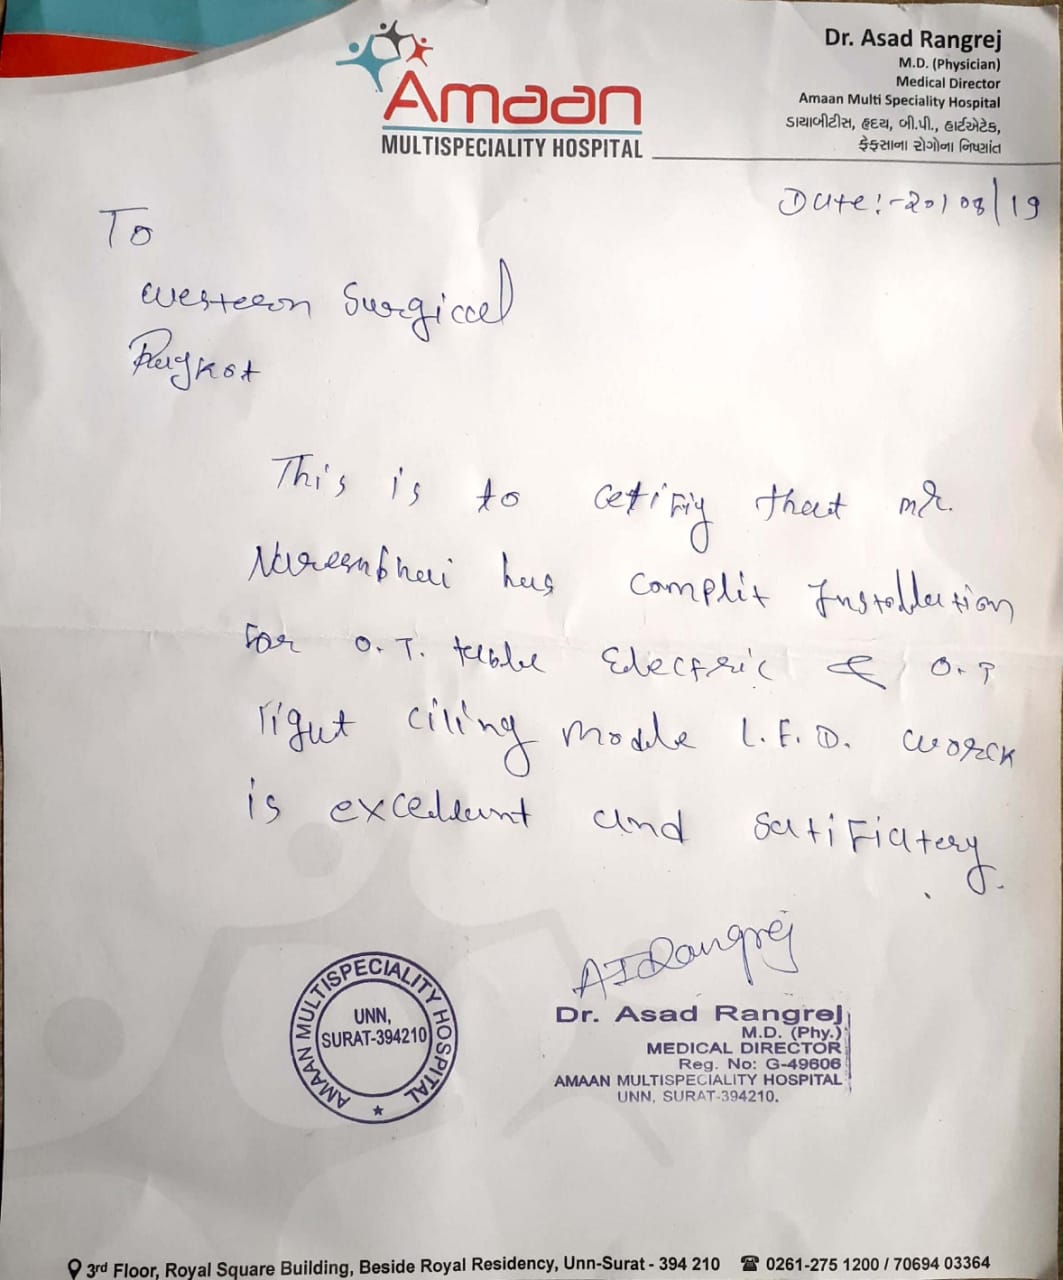 Amaan
MULTISPECIALITY HOSPITAL
Dr. Asad Rangrej
M.D. (Physician)
Medical Director
Amaan Multi Speciality Hospital
ડાયાબીટીસ, હૃદય, બી.પી., હાર્ટએટેક,
ફેફસાના રોગોના નિષ્ણાંત
Date:-20/08/19
To
Western Surgical
Rajkot
This is to cetifiy that mr.
Nareenbhai has complit Installation
For O.T. table Electric & O.T
light ciling modle L.E.D. worck
is excellant and satifiatery.
AIRangrej
Dr. Asad Rangrej
M.D. (Phy.)
MEDICAL DIRECTOR
Reg. No: G-49606
AMAAN MULTISPECIALITY HOSPITAL
UNN, SURAT-394210.
AMAAN MULTISPECIALITY HOSPITAL
UNN,
SURAT-394210
3rd Floor, Royal Square Building, Beside Royal Residency, Unn-Surat - 394 210 ☎ 0261-275 1200 / 70694 03364